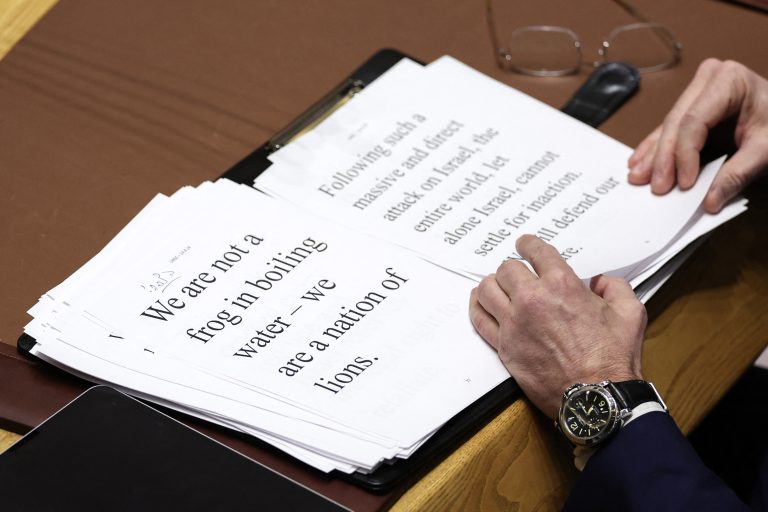 We are not a
frog in boiling
water – we
are a nation of
lions.
Following such a
massive and direct
attack on Israel, the
entire world, let
alone Israel, cannot
settle for inaction.
will defend our